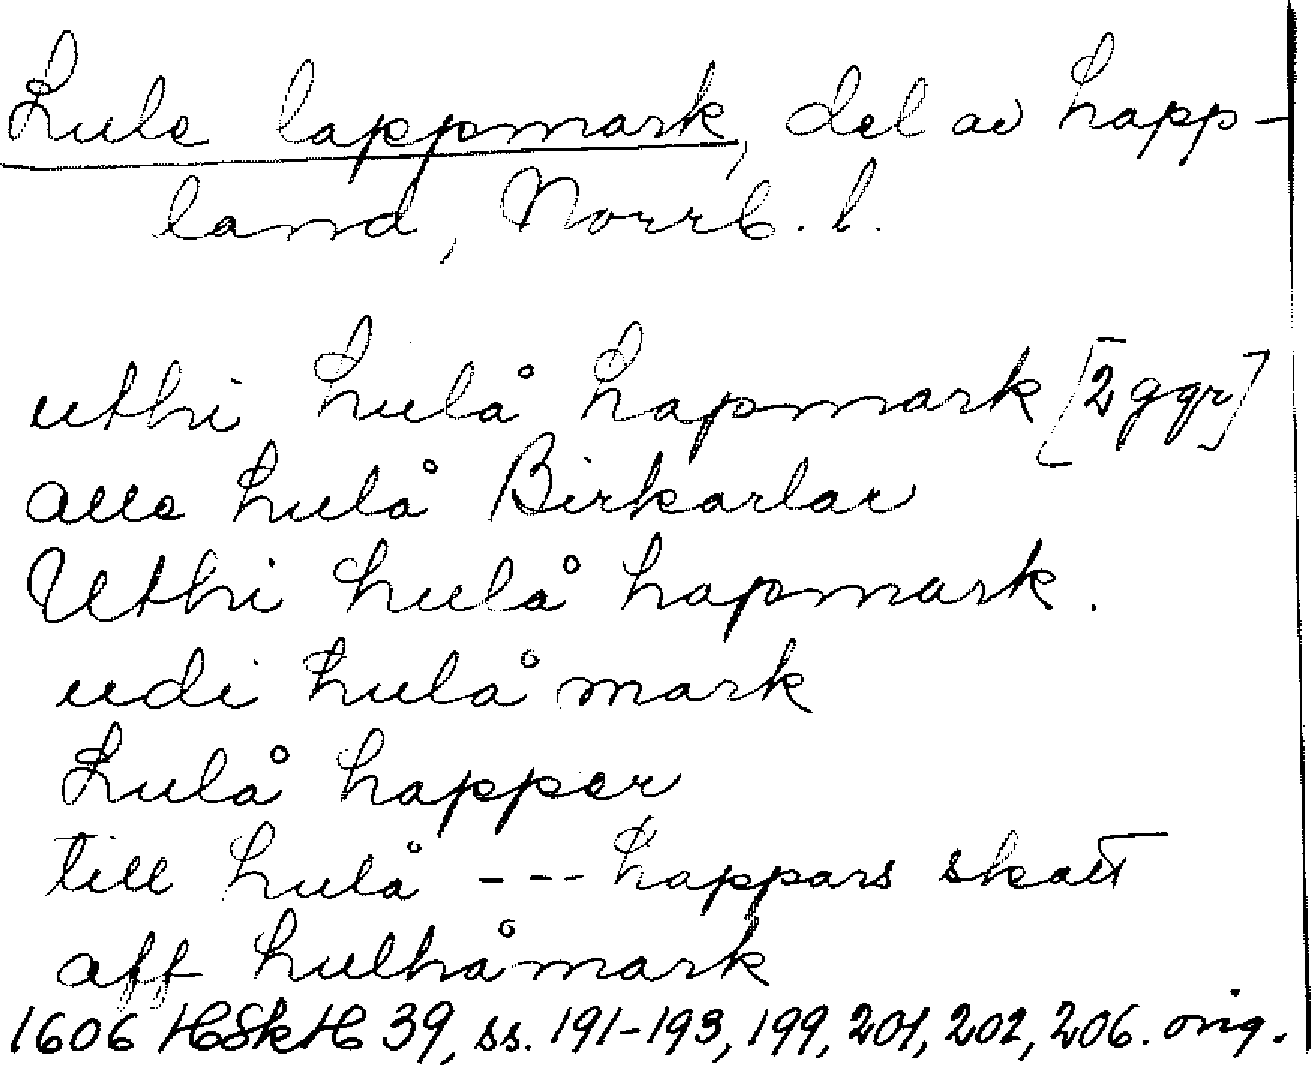 Lule lappmark, del av Lapp-
land, Norrb. l.
uthi Lulå Lapmark [2 ggr]
alle Lulå Birkarlar
Uthi Lulå Lapmark.
udi Lulå mark
Lulå Lapper
till Lulå --- Lappars skatt
aff Lulhåmark
1606 HSkH 39, ss. 191-193, 199, 201, 202, 206. orig.